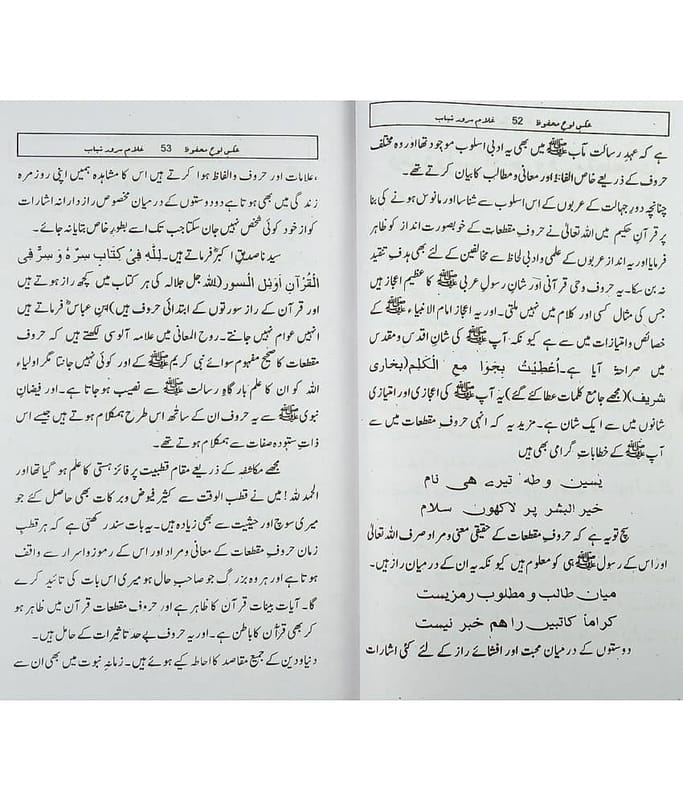 عکسِ لوحِ محفوظ 52 غلام سرور شباب
ہے کہ عہد رسالت مآب ﷺ میں بھی یہ ادبی اسلوب موجود تھا اور وہ مختلف
حروف کے ذریعے خاص الفاظ اور معانی و مطالب کا بیان کرتے تھے۔
چنانچہ دورِ جہالت کے عربوں کے اس اسلوب سے شناسا اور مانوس ہونے کی بنا
پر قرآنِ حکیم میں اللہ تعالیٰ نے حروفِ مقطعات کے خوبصورت انداز کو ظاہر
فرمایا اور یہ انداز عربوں کے علمی و ادبی لحاظ سے مخالفین کے لئے بھی ہدفِ تنقید
نہ بن سکا۔ یہ حروف وحی قرآنی اور شانِ رسولِ عربی ﷺ کا عظیم اعجاز ہیں
جس کی مثال کسی اور کلام میں نہیں ملتی۔ اور یہ اعجاز امام الانبیاء ﷺ کے
خصائص و امتیازات میں سے ہے کیونکہ آپ ﷺ کی شانِ اقدس و مقدس
میں صراحۃً آیا ہے۔ اُعْطِیْتُ بِجَوَا مِعِ الْکَلِمِ (بخاری
شریف) (مجھے جامع کلمات عطا کئے گئے) یہ آپ ﷺ کی اعجازی اور امتیازی
شانوں میں سے ایک شان ہے۔ مزید یہ کہ انہی حروفِ مقطعات میں سے
آپ ﷺ کے خطاباتِ گرامی بھی ہیں
یٰسین و طٰہٰ تیرے ھی نام
خیر البشر پر لاکھوں سلام
سچ تو یہ ہے کہ حروفِ مقطعات کے حقیقی معنی و مراد صرف اللہ تعالیٰ
اور اس کے رسول ﷺ ہی کو معلوم ہیں کیونکہ یہ ان کے درمیان راز ہیں۔
میان طالب و مطلوب رمزیست
کراماً کاتبیں را ھم خبر نیست
دوستوں کے درمیان محبت اور افشائے راز کے لئے کئی اشارات
عکسِ لوحِ محفوظ 53 غلام سرور شباب
، علامات اور حروف و الفاظ ہوا کرتے ہیں اس کا مشاہدہ ہمیں اپنی روزمرہ
زندگی میں بھی ہوتا ہے دو دوستوں کے درمیان مخصوص راز دارانہ اشارات
کو از خود کوئی شخص نہیں جان سکتا جب تک اسے بطورِ خاص بتایا نہ جائے۔
سیدنا صدیق اکبرؓ فرماتے ہیں۔ لِلّٰهِ فِیْ کِتَابٍ سِرَّہٗ وَ سِرَّ فِی
الْقُرْآنِ اَوَئِلَ السور (اللہ جل جلالہ کی ہر کتاب میں کچھ راز ہوتے ہیں
اور قرآن کے راز سورتوں کے ابتدائی حروف ہیں) ابنِ عباسؓ فرماتے ہیں
انہیں عوام نہیں جانتے۔ روح المعانی میں علامہ آلوسی لکھتے ہیں کہ حروف
مقطعات کا صحیح مفہوم سوائے نبی کریم ﷺ کے اور کوئی نہیں جانتا مگر اولیاء
اللہ کو ان کا علم بارگاہِ رسالت ﷺ سے نصیب ہو جاتا ہے۔ اور فیضانِ
نبوی ﷺ سے یہ حروف ان کے ساتھ اس طرح ہمکلام ہوتے ہیں جیسے اس
ذاتِ ستودہ صفات سے ہمکلام ہوتے تھے۔
مجھے مکاشفہ کے ذریعے مقامِ قطبیت پر فائز ہستی کا علم ہو گیا تھا اور
الحمد للہ! میں نے قطب الوقت سے کثیر فیوض و برکات بھی حاصل کئے جو
میری سوچ اور حیثیت سے بھی زیادہ ہیں۔ یہ بات سند رکھتی ہے کہ ہر قطبِ
زمان حروفِ مقطعات کے معانی و مراد اور اس کے رموز و اسرار سے واقف
ہوتا ہے اور ہر وہ بزرگ جو صاحبِ حال ہو میری اس بات کی تائید کرے
گا۔ آیات بینات قرآن کا ظاہر ہے اور حروف مقطعات قرآن میں ظاہر ہو
کر بھی قرآن کا باطن ہے۔ اور یہ حروف بے حد تاثیرات کے حامل ہیں۔
دنیا و دین کے جمیع مقاصد کا احاطہ کیے ہوئے ہیں۔ زمانہ نبوت میں بھی ان سے